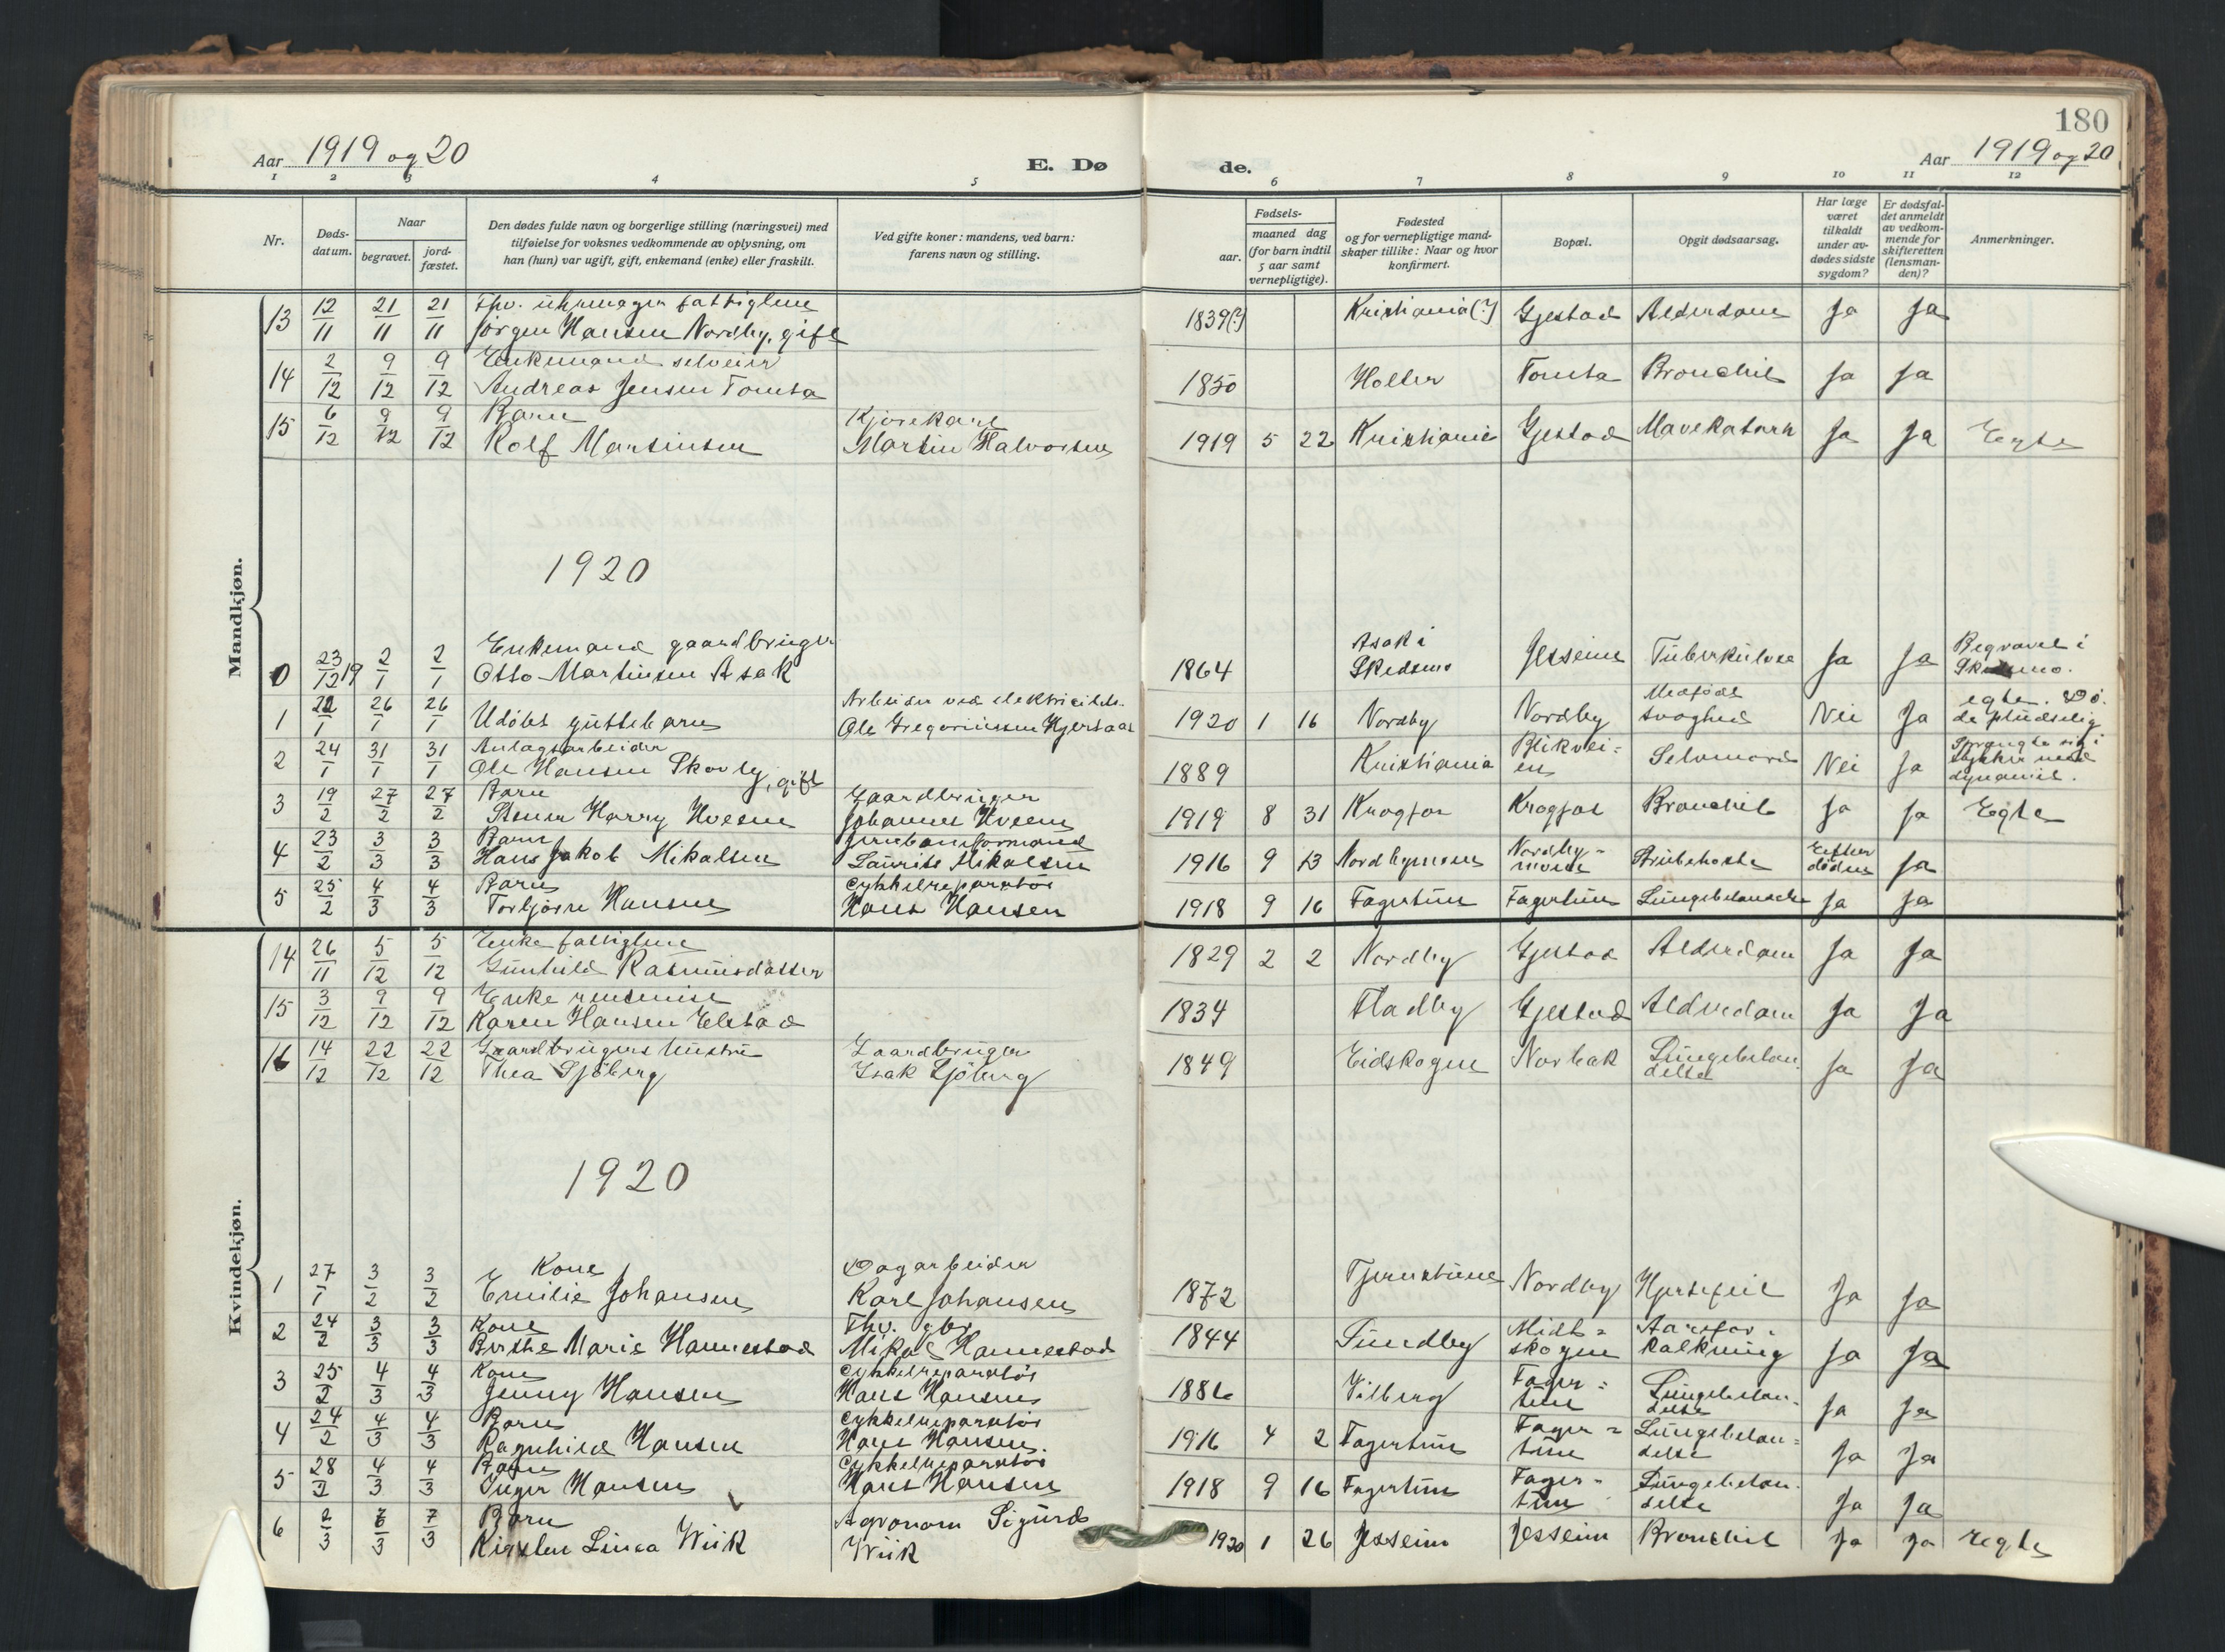 180
Aar 1919 og 20
E. Dø
de.
Aar 1919 og 20
1 2 3 4 5 6 7 8 9 10 11 12
Nr.
Døds-
datum.
Naar
begravet.
jord-
fæstet.
Den dødes fulde navn og borgerlige stilling (næringsvei) med
tilføielse for voksnes vedkommende av oplysning, om
han (hun) var ugift, gift, enkemand (enke) eller fraskilt.
Ved gifte koner: mandens, ved barn:
farens navn og stilling.
Fødsels-
aar.
maaned dag
(for barn indtil
5 aar samt
vernepligtige).
Fødested
og for vernepligtige mand-
skaper tillike: Naar og hvor
konfirmert.
Bopæl.
Opgit dødsaarsag.
Har læge
været
tilkaldt
under av-
dødes sidste
sygdom?
Er dødsfal-
det anmeldt
av vedkom-
mende for
skifteretten
(lensman-
den)?
Anmerkninger.
Mandkjøn.
13 12/11 21/11 21/11 Fhv. uhrmager fattiglem
Jörgen Hansen Nordby, gift 1839(?) Kristiania(?) Gjestad Alderdom Ja Ja
14 2/12 9/12 9/12 Enkemand selveier
Andreas Jensen Tomta 1850 Holter Tomta Bronchit Ja Ja
15 6/12 9/12 9/12 Barn Kjörekarl
Rolf Martinsen Martin Halvorsen 1919 5 22 Kristiania Gjestad Mavekatarh Ja Ja Egte
1920
0 23/12 19 2/1 2/1 Enkemand gaardbruger
Otto Martinsen Asak 1864 Asak i Skedsmo Jesseim Tuberkulose Ja Ja Begravet i Skedsmo.
1 22/1 26/1 26/1 Udöbt guttebarn Arbeider ved elektricitets-
Ole Gregoriussen Kjersaas 1920 1 16 Nordby Nordby Medfödt svaghed Nei Ja egte. Dö-
de pludselig
2 24/1 31/1 31/1 Anlagsarbeider
Ole Hansen Skovly, gift 1889 Kristiania Blikvei-
en Selvmord Nei Ja Sprængte sig i
stykker med
dynamit.
3 19/2 27/2 27/2 Barn Gaardbruger
Harry Hveem Johannes Hveem 1919 8 31 Krogfos Krogfos Bronchit Ja Ja Egte
4 23/2 3/3 3/3 Barn Jernbaneformand
Hans Jakob Mikalsen Laurits Mikalsen 1916 9 13 Nordbymoen Nordby-
moen Strubehoste Efter
döden Ja
5 25/2 4/3 4/3 Barn Cykkelreparatör
Torbjörn Hansen Hans Hansen 1918 9 16 Fagertun Fagertun Lungebetændelse Ja Ja
Kvindekjøn.
14 26/11 5/12 5/12 Enke fattiglem
Gunhild Rasmusdatter 1829 2 2 Nordby Gjestad Alderdom Ja Ja
15 3/12 9/12 9/12 Enke rentenist
Karen Hansen Elstad 1834 Fladby Gjestad Alderdom Ja Ja
16 14/12 22/12 22/12 Gaardbrugers hustru Gaardbruger
Thea Sjöberg Isak Sjöberg 1849 Eidskogen Norbak Lungebetæn-
delse Ja Ja
1920
1 27/1 3/2 3/2 Kone Dagarbeider
Emilie Johansen Karl Johansen 1872 Tjernstuen Nordby Hjertefeil Ja Ja
2 24/2 3/3 3/3 Kone Fhv. gbr.
Berthe Marie Hannestad Mikal Hannestad 1844 Sundby Midt-
skogen Aarefor-
kalkning Ja Ja
3 25/2 4/3 4/3 Kone Cykkelreparatör
Jenny Hansen Hans Hansen 1886 Vilberg Fager-
tun Lungebetæn-
delse Ja Ja
4 24/2 4/3 4/3 Barn Cykkelreparatör
Ragnhild Hansen Hans Hansen. 1916 4 2 Fagertun Fager-
tun Lungebetæn-
delse Ja Ja
5 28/2 4/3 4/3 Barn Cykkelreparatör
Inger Hansen Hans Hansen 1918 9 16 Fagertun Fager-
tun Lungebetæn-
delse Ja Ja
6 2/3 7/3 7/3 Barn Agronom Sigurd
Kirsten Linea Wiik Wiik 1920 1 26 Jesseim Jesseim Bronchit Ja Ja egte